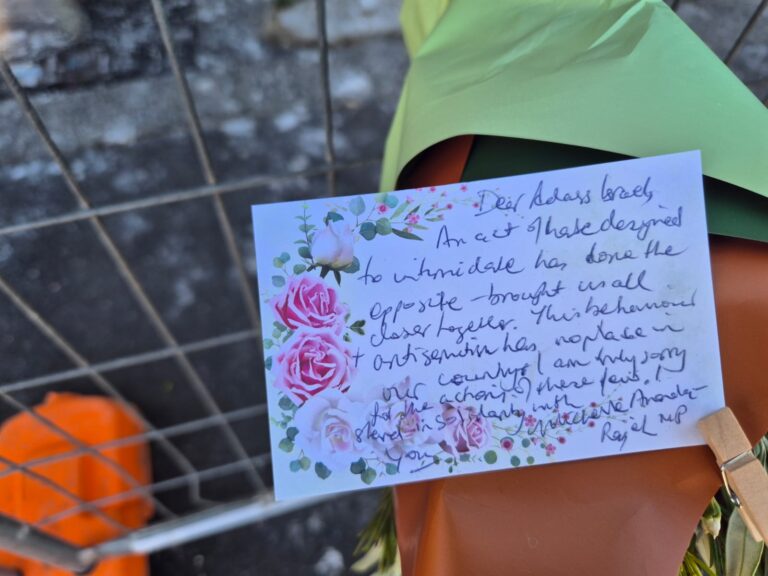 Dear Adass Israel,
An act of hate designed
to intimidate has done the
opposite - brought us all
closer together. This behaviour
+ antisemitism has no place in
our country. I am truly sorry
for the actions of these few. I
stand in solidarity with
you. Michelle Ananda-
Rajah MP